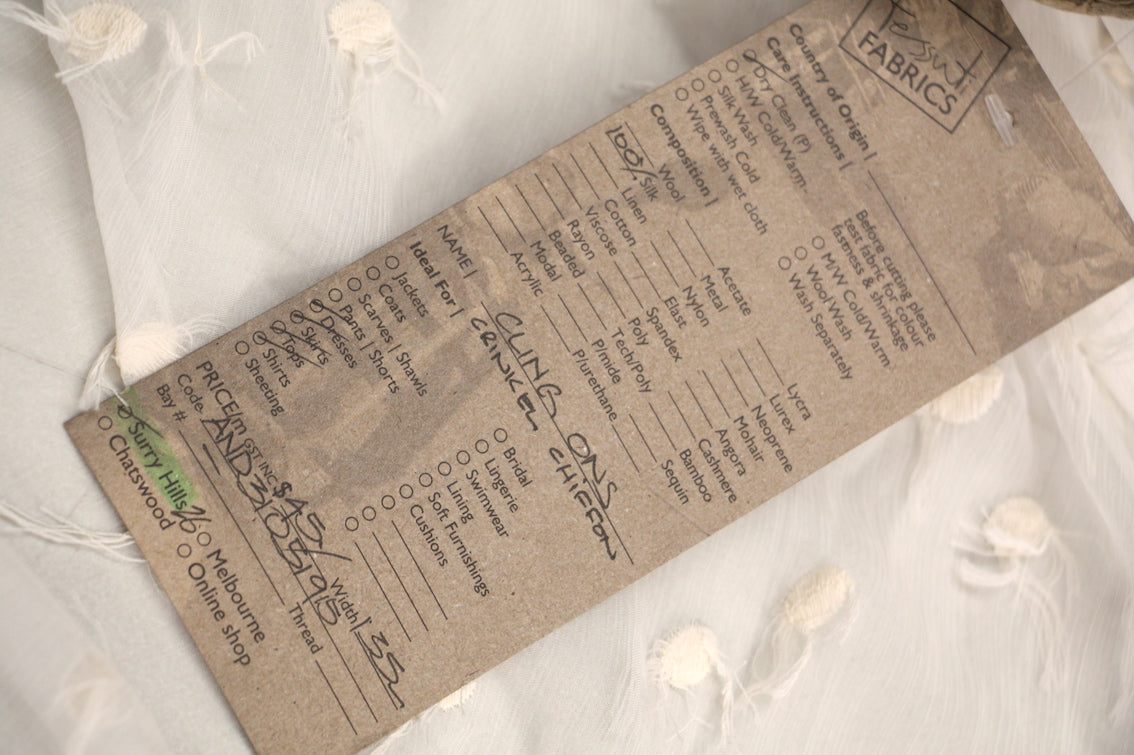 Tessuti
FABRICS
Country of Origin |
Care Instructions |
Dry Clean (P)
H/W Cold/Warm.
Silk Wash
Prewash Cold
Wipe with wet cloth
Before cutting please
test fabric for colour
fastness & shrinkage
M/W Cold/Warm
Wool Wash
Wash Separately
Composition |
Wool
100% Silk
Linen
Cotton
Viscose
Rayon
Beaded
Modal
Acrylic
Acetate
Metal
Nylon
Elast
Spandex
Poly
Tech/Poly
P/mide
P/urethane
Lycra
Lurex
Neoprene
Mohair
Angora
Cashmere
Bamboo
Sequin
NAME | CLING ONS
CRINKLE CHIFFON
Ideal For |
Jackets
Coats
Scarves | Shawls
Pants | Shorts
Dresses
Skirts
Tops
Shirts
Sheeting
Bridal
Lingerie
Swimwear
Lining
Soft Furnishings
Cushions
PRICE/m GST INC $45/ Width 135
Code. AND31051915
Bay # Thread
Surry Hills 26
Chatswood
Melbourne
Online shop